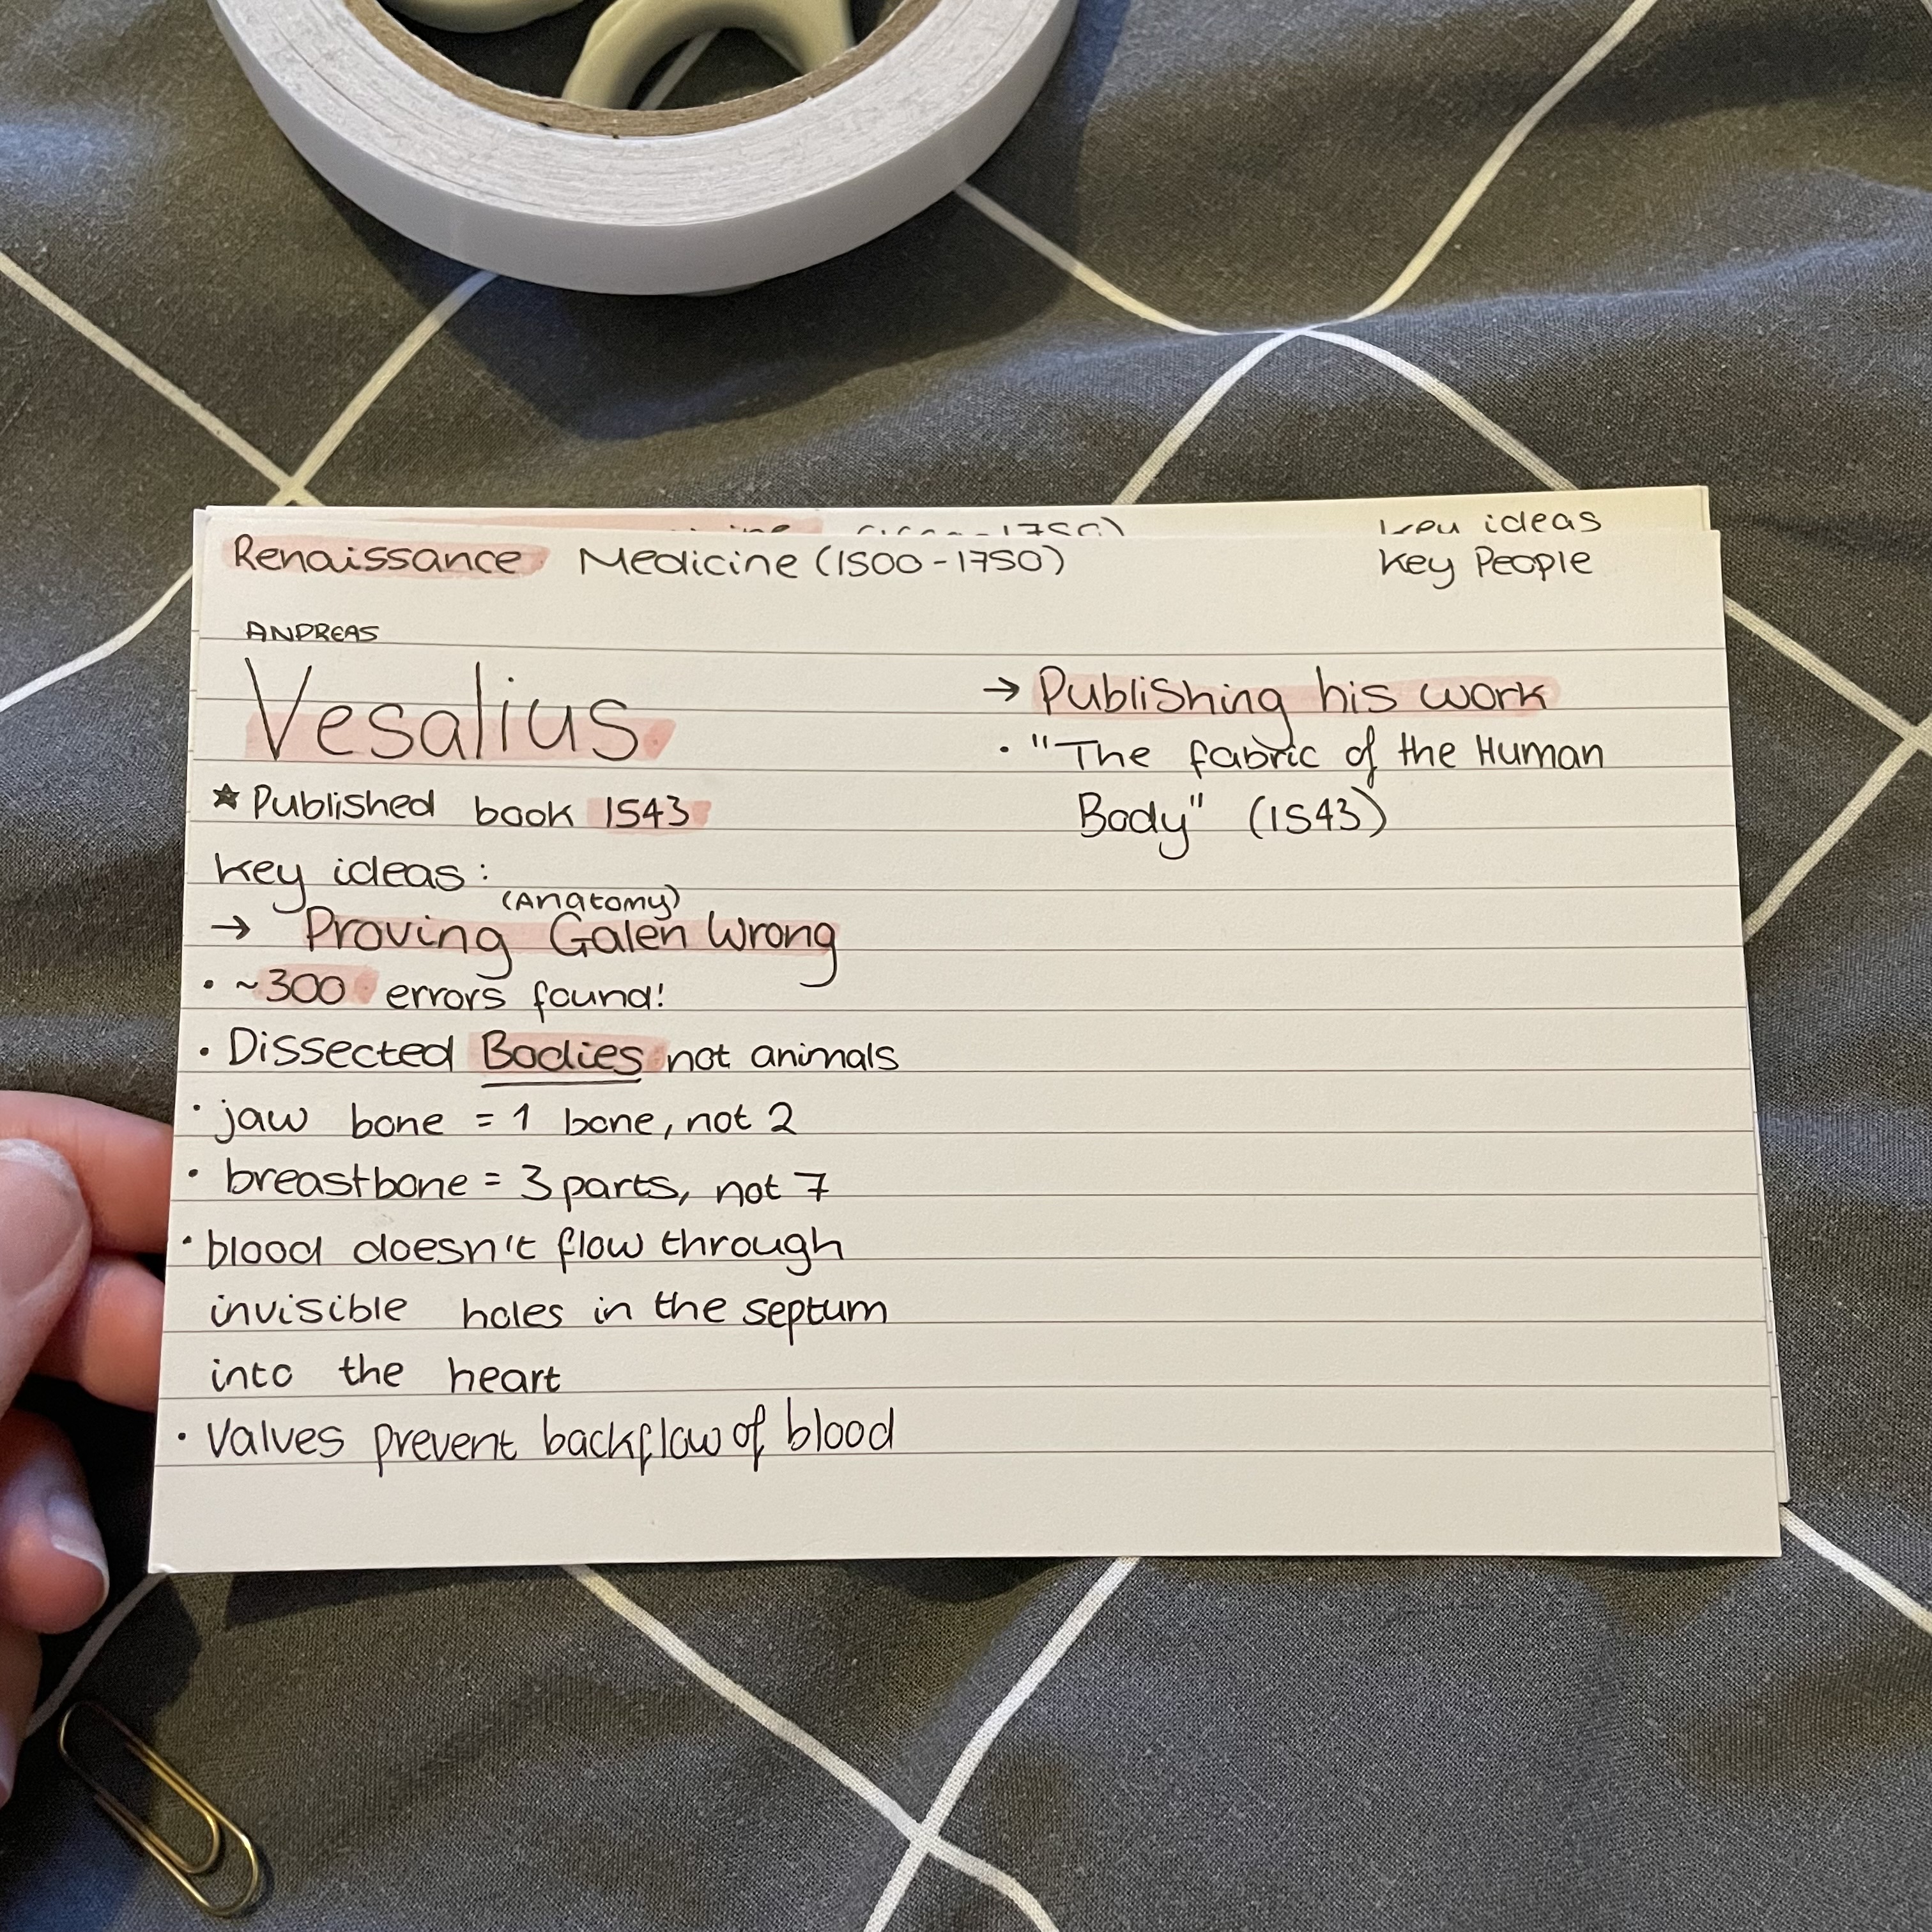 1750)
Key ideas
Renaissance Medicine (1500-1750)
Key People
ANDREAS
Vesalius
★ Published book 1543
Key ideas:
(Anatomy)
→ Proving Galen Wrong
• ~300 errors found!
• Dissected Bodies not animals
• jaw bone = 1 bone, not 2
• breastbone = 3 parts, not 7
• blood doesn't flow through
invisible holes in the septum
into the heart
• Valves prevent backflow of blood
→ Publishing his work
• "The fabric of the Human
Body" (1543)